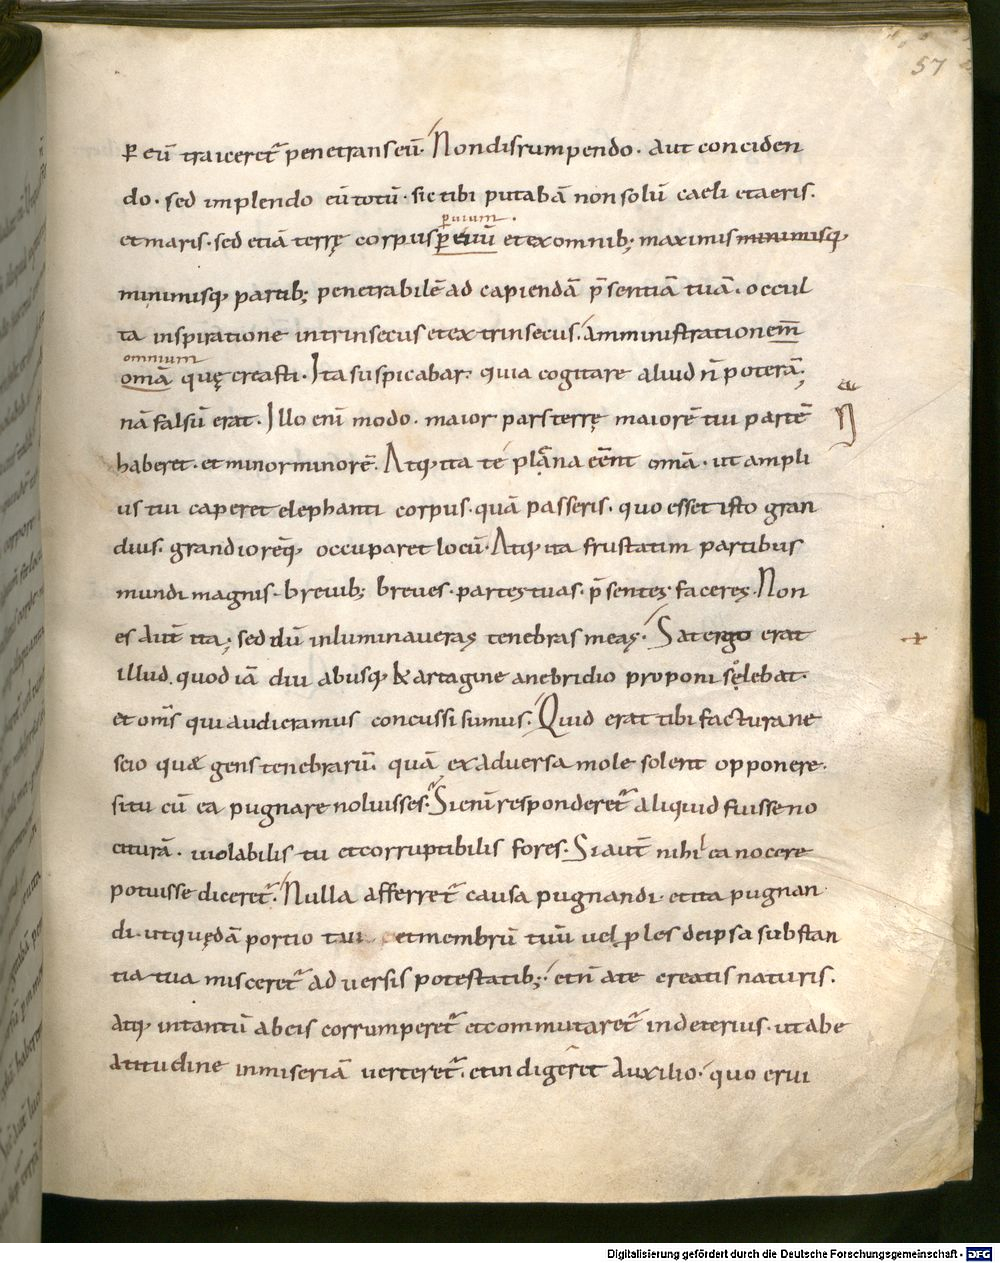 57
ꝑ eū traiceret᷑ penetrans eū. Non disrumpendo. aut conciden
do. sed implendo eū totū. sic tibi putabā non solū caeli et aeris.
et maris. sed etiā terrę corpus ꝑ euū et ex omnib; maximis minimisq;
ꝑuium.
minimisq; partib; penetrabilē ad capiendā p̄sentiā tuā. occul
ta inspiratione intrinsecus et extrinsecus. amministrationem̄
omnium
om̄a quę creasti. Ita suspicabar. quia cogitare aliud n̄ poterā;
nā falsū erat. Illo enī modo. maior pars terrę maiorē tui partē
haberet. et minor minorē. Atq; ita te plāna eēnt om̄a. ut ampli
us tui caperet elephanti corpus. quā passeris. quo esset isto gran
dius. grandioreq; occuparet locū. Atq; ita frustatim partibus
mundi magnis. breuib; breues. partes tuas. p̄sentes faceres. Non
es aut̄ ita; sed dū inluminaueras tenebras meas. Sat ergo erat
illud. quod iā diu abusq; kartagine anebridio proponi sęlebat.
et om̄s qui audieramus concussi sumus. Quid erat tibi factura ne
scio quæ gens tenebrarū. quā ex aduersa mole solent opponere.
si tu cū ea pugnare noluisses. Si enī responderet᷑ aliquid fuisse no
citurā. uiolabilis tu et corruptibilis fores. Si aut̄ nihil ea nocere
potuisse diceret᷑. Nulla afferret᷑ causa pugnandi. et ita pugnan
di. ut quędā portio tui et membrū tuū uel ꝓles de ipsa substan
tia tua misceret᷑ aduersis potestatib;. et n̄ a te creatis naturis.
atq; intantū ab eis corrumperet᷑ et commutaret᷑ in deterius. ut a be
atitudine in miseriā uerteret᷑. et indigeret auxilio. quo erui
Digitalisierung gefördert durch die Deutsche Forschungsgemeinschaft - DFG